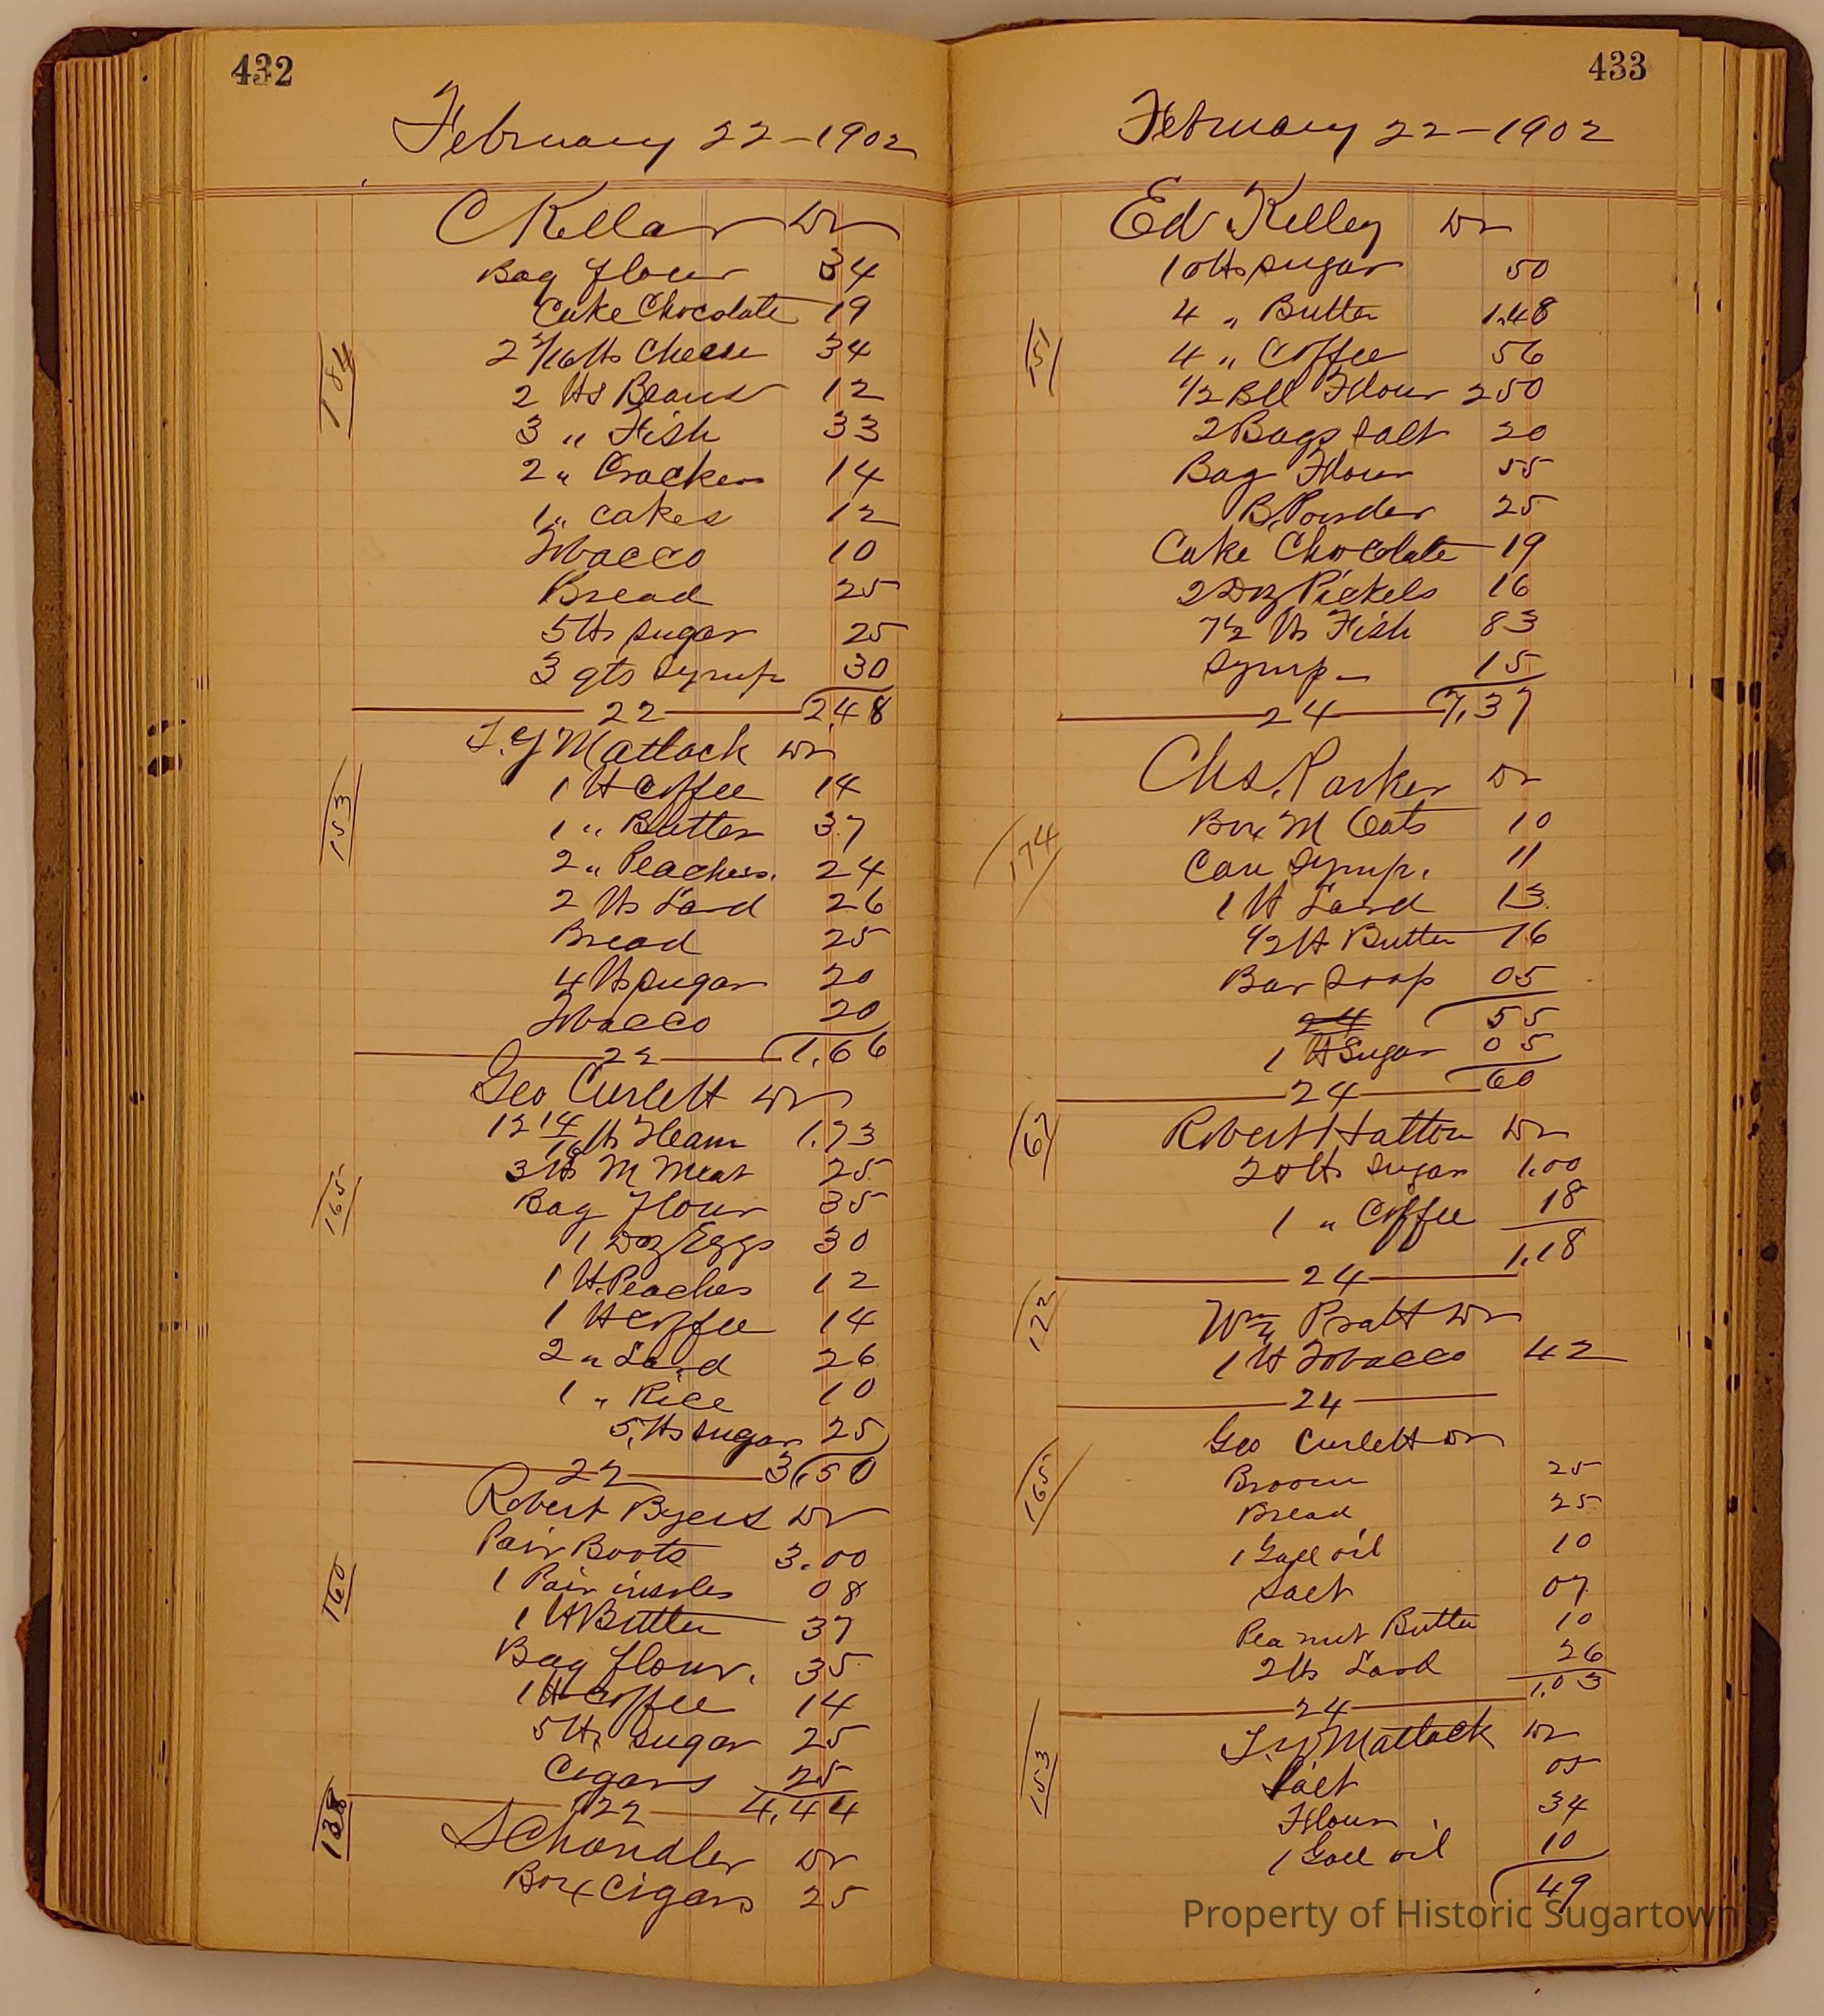 432
February 22-1902
C Kellar Dr
Bag flour 34
Cake Chocolate 19
2 3/16 lbs Cheese 34
2 lbs Beans 12
3 " Fish 33
2 " Crackers 14
1 " cakes 12
Tobacco 10
Bread 25
5 lbs sugar 25
3 qts Syrup 30
184
22 2.48
T. Y Matlack Dr
1 lb Coffee 14
1 " Butter 37
2 " Peaches. 24
2 lbs Lard 26
Bread 25
4 lbs sugar 20
Tobacco 20
153
22 1.66
Geo Curlett Dr
12 14/16 lbs Ham 1.73
3 lbs M Meat 25
Bag flour 35
1 Doz Eggs 30
1 lb Peaches 12
1 lb Coffee 14
2 " Lard 26
1 " Rice 10
5 lbs sugar 25
165
22 3.50
Robert Byers Dr
Pair Boots 3.00
1 Pair insoles 08
1 lb Butter 37
Bag flour. 35
1 lb Coffee 14
5 lbs sugar 25
Cigars 25
160
22 4.44
S Chandler Dr
Box Cigars 25
138
433
February 22-1902
Ed Kelley Dr
10 lbs sugar 50
4 " Butter 1.48
4 " Coffee 56
1/2 Bll Flour 250
2 Bags salt 20
Bag Flour 55
B. Powder 25
Cake Chocolate 19
2 Doz Pickels 16
7 1/2 lbs Fish 83
Syrup 15
151
24 7.37
Chs. Parker Dr
Box M Oats 10
Can Syrup. 11
1 lb Lard 13
1/2 lb Butter 16
Bar Soap 05
24 55
1 lb Sugar 05
174
24 60
Robert Hatton Dr
20 lbs sugar 1.00
1 " Coffee 18
1.18
67
24
Wm Pratt Dr
1 lb Tobacco 42
122
24
Geo Curlett Dr
Broom 25
Bread 25
1 Gall oil 10
Salt 07
Pea nut Butter 10
2 lbs Lard 26
165
24 1.03
T. Y Matlack Dr
Salt 05
Flour 34
1 Gall oil 10
153
49
Property of Historic Sugartown